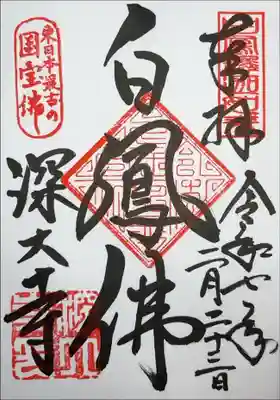 奉拝
令和七年
二月二十二日
白鳳佛
東日本最古の
国宝佛
深大寺